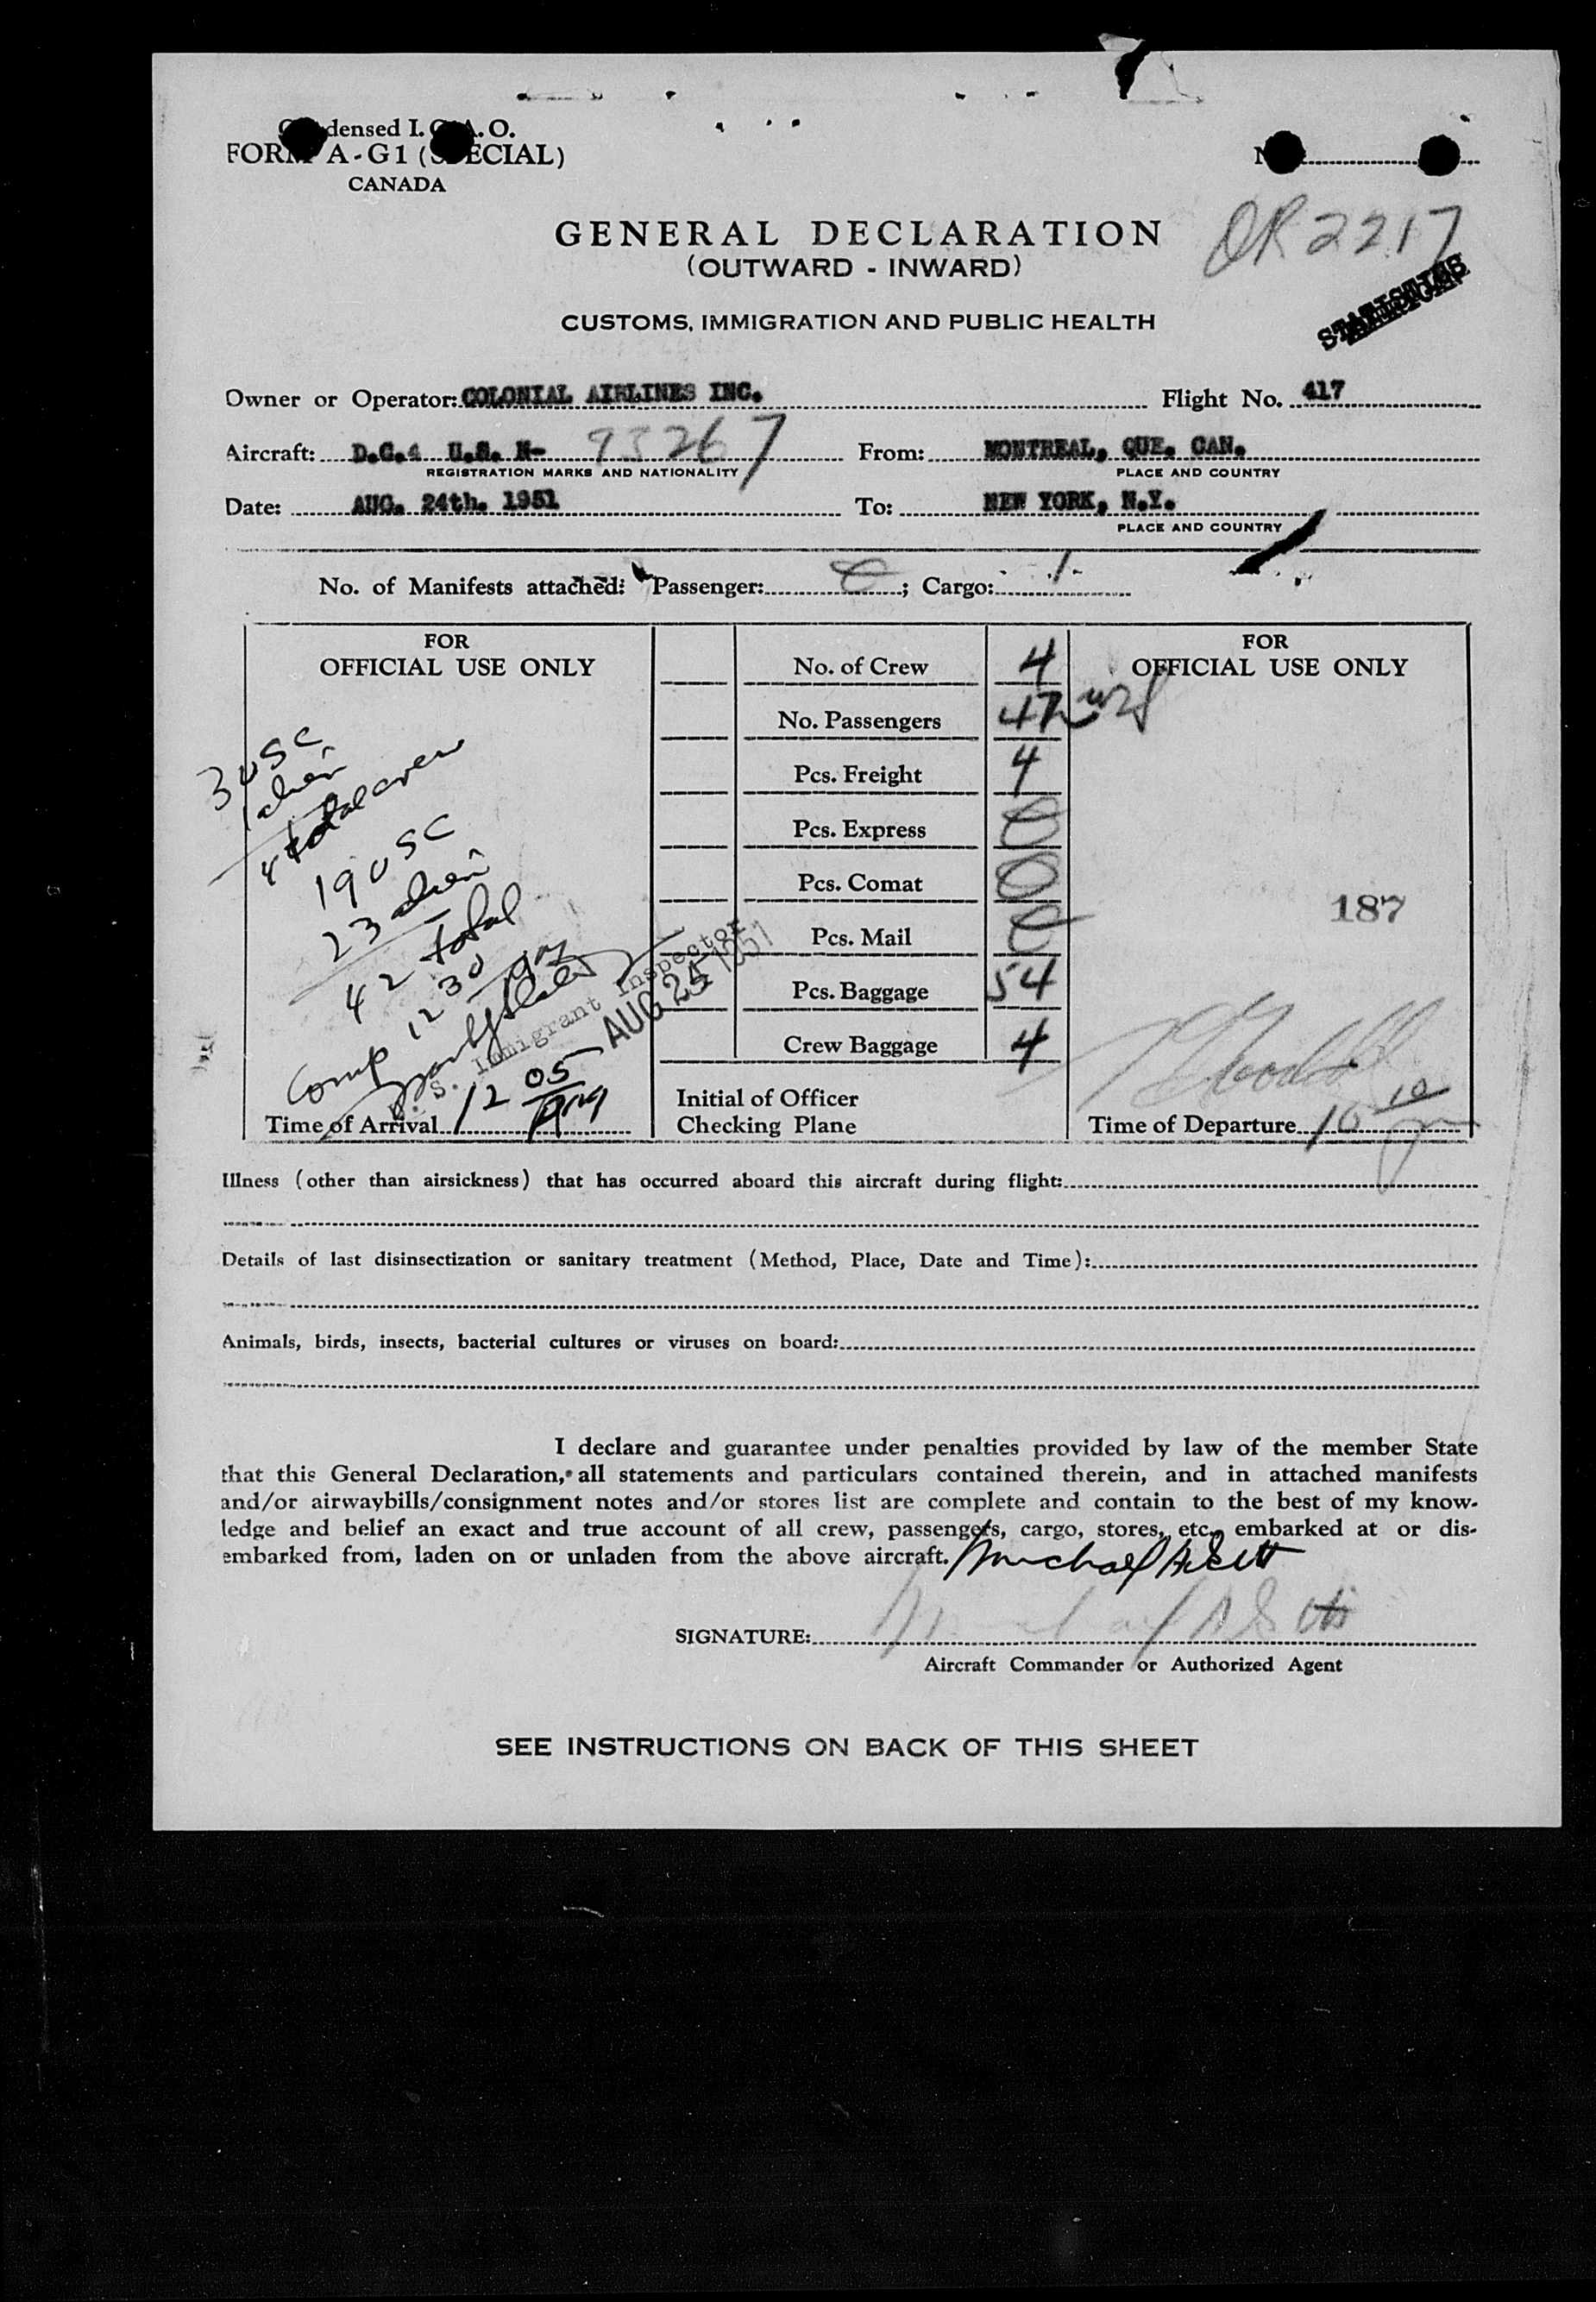 densed I. A. O.
FORM A-G1 (SPECIAL)
CANADA
OR 2217
GENERAL DECLARATION
(OUTWARD - INWARD)
CUSTOMS, IMMIGRATION AND PUBLIC HEALTH
Owner or Operator: COLONIAL AIRLINES INC. Flight No. 417
Aircraft: D.C.4 U.S. N- 93267 From: MONTREAL, QUE. CAN.
REGISTRATION MARKS AND NATIONALITY PLACE AND COUNTRY
Date: AUG. 24th. 1951 To: NEW YORK, N.Y.
PLACE AND COUNTRY
No. of Manifests attached: Passenger: ; Cargo: 1
FOR
OFFICIAL USE ONLY
3 USC
1 alien
4 total crew
19 USC
23 alien
42 total
Comp 12 30 am
U. S. Immigrant Inspector
AUG 25 1951
Time of Arrival 12 05 am
No. of Crew 4
No. Passengers 42
Pcs. Freight 4
Pcs. Express
Pcs. Comat
Pcs. Mail
Pcs. Baggage 54
Crew Baggage 4
Initial of Officer
Checking Plane
FOR
OFFICIAL USE ONLY
187
Time of Departure 10 10
Illness (other than airsickness) that has occurred aboard this aircraft during flight:
Details of last disinsectization or sanitary treatment (Method, Place, Date and Time):
Animals, birds, insects, bacterial cultures or viruses on board:
I declare and guarantee under penalties provided by law of the member State
that this General Declaration, all statements and particulars contained therein, and in attached manifests
and/or airwaybills/consignment notes and/or stores list are complete and contain to the best of my know-
ledge and belief an exact and true account of all crew, passengers, cargo, stores, etc., embarked at or dis-
embarked from, laden on or unladen from the above aircraft. Michael
SIGNATURE: Michael
Aircraft Commander or Authorized Agent
SEE INSTRUCTIONS ON BACK OF THIS SHEET